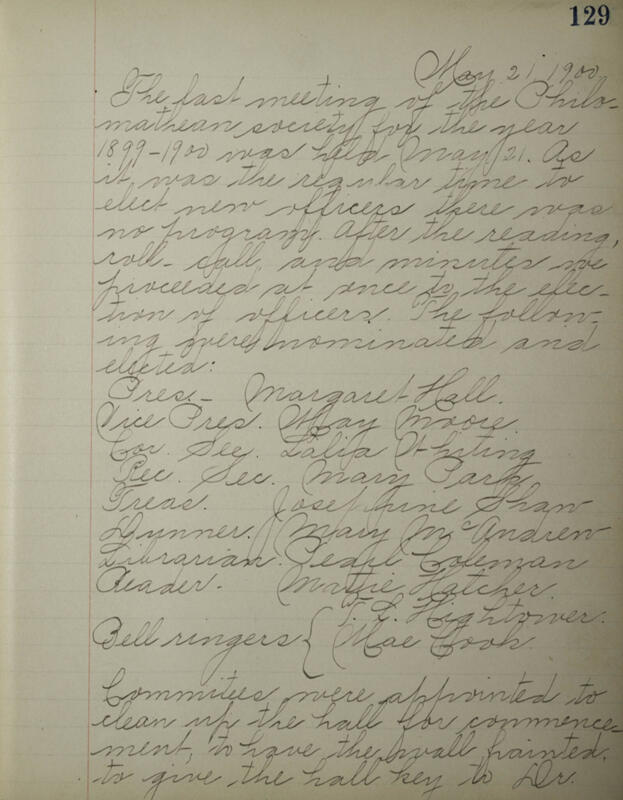 129
May 21, 1900
The last meeting of the Philo-
mathean society for the year
1899-1900 was held May 21. As
it was the regular time to
elect new officers there was
no program. After the reading,
roll-call, and minutes we
proceeded at once to the elec-
tion of officers. The follow-
ing were nominated and
elected:
Pres.- Margaret Hall.
Vice Pres. May Moore.
Cor. Sec. Lalia Whiting
Rec. Sec. Mary Park
Treas. Josephine Shaw
Dunner. Mary McAndrew
Librarian. Pearl Coleman
Reader. Mattie Hatcher.
Bell ringers { T. L. Hightower.
Mae Cook.
Commitees were appointed to
clean up the hall for commence-
ment, to have the wall painted,
to give the hall key to Dr.